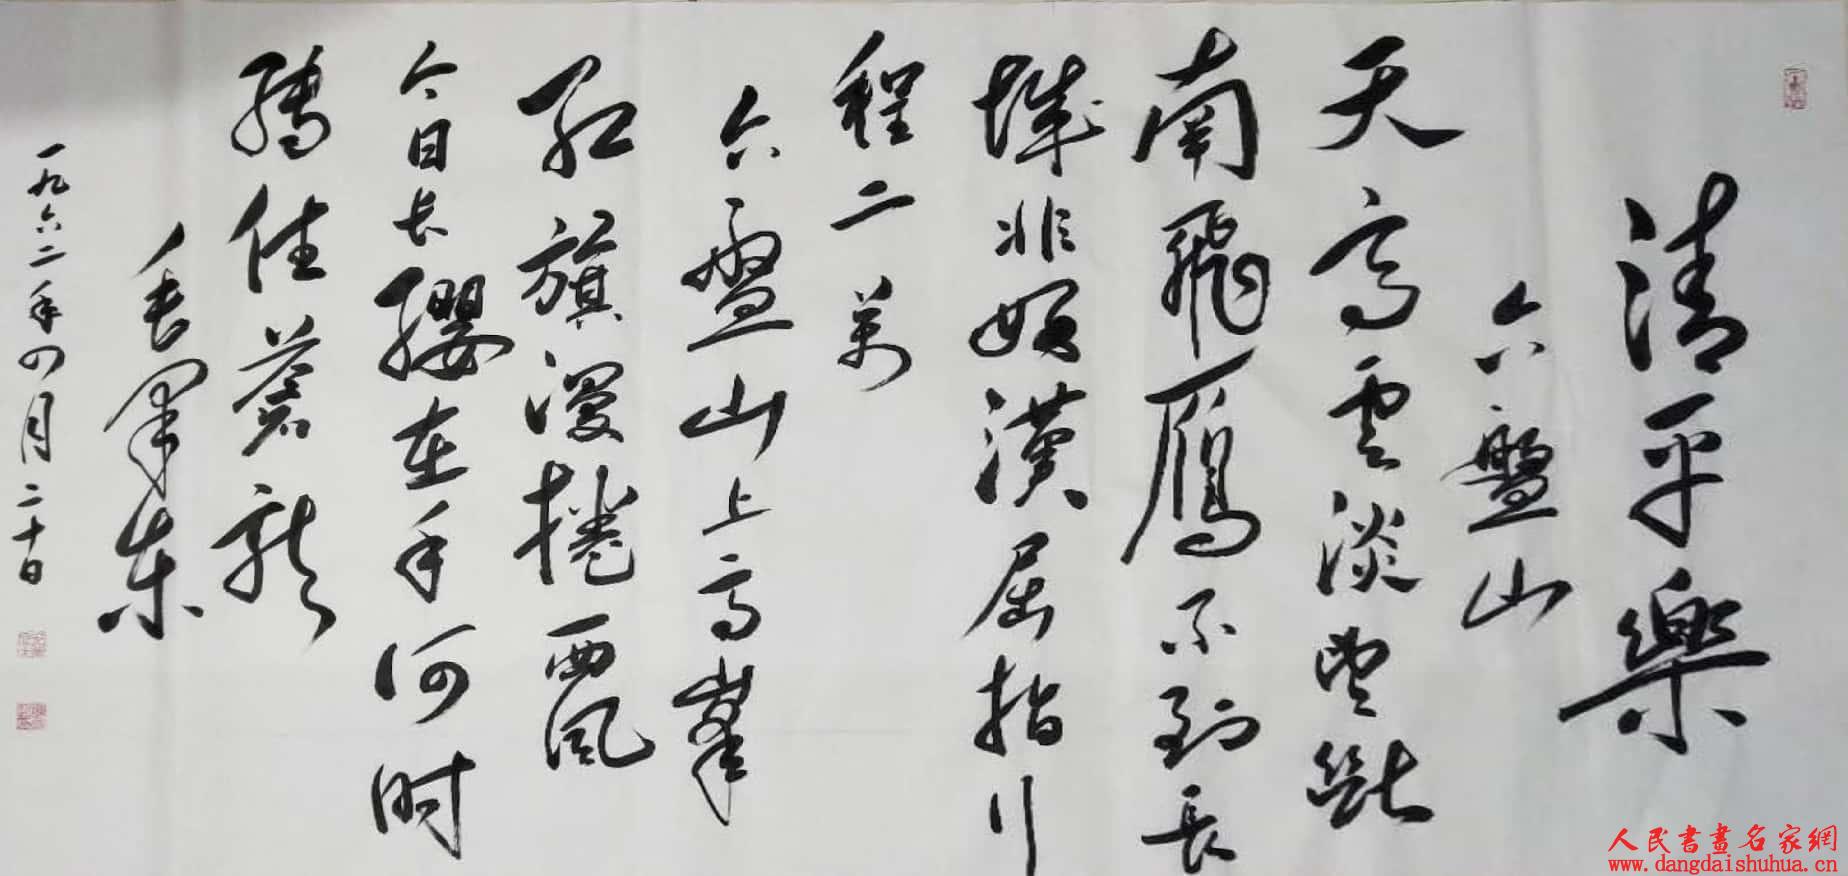 清平樂
六盤山
天高雲淡望斷
南飛雁不到長
城非好漢屈指行
程二萬
六盤山上高峯
紅旗漫捲西風
今日長纓在手何時
縛住蒼龍
毛澤东
一九六二年四月二十日
人民書畫名家網
www.dangdaishuhua.cn